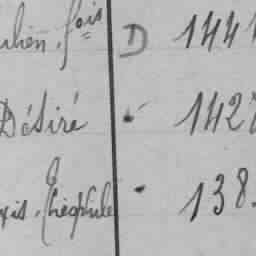 ulien, fois D 144
Désiré " 142
xis, Théophile " 138